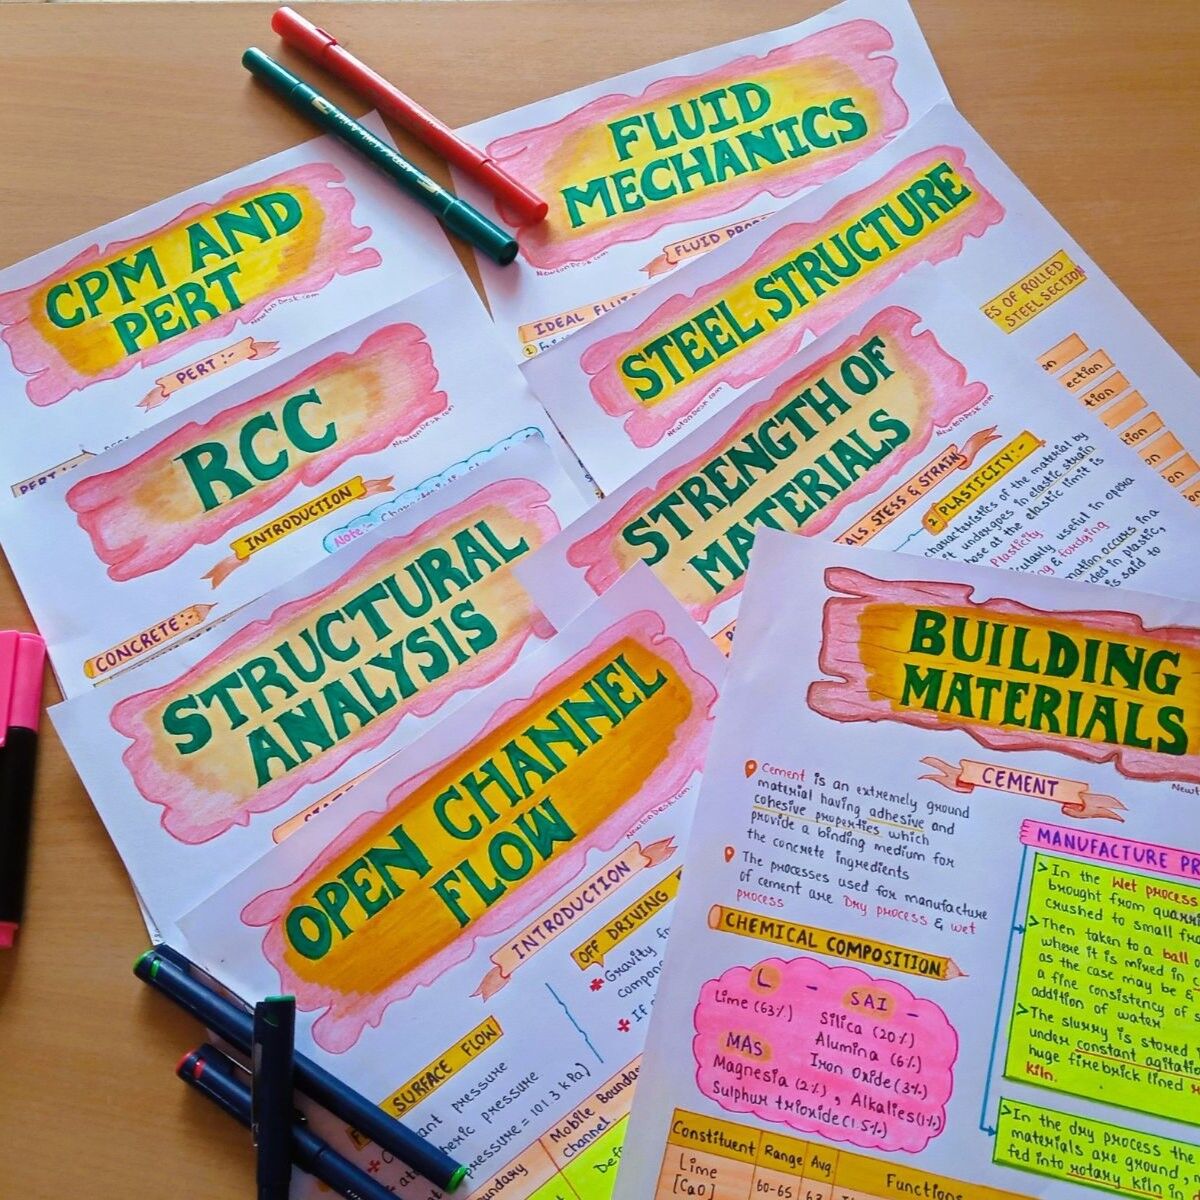 FLUID
MECHANICS
NewtonDesk.com
IDEAL
STEEL STRUCTURE
NewtonDesk.com
ES OF ROLLED
STEEL SECTION
ection
tion
tion
CPM AND
PERT
NewtonDesk.com
PERT :-
PERT :-
RCC
NewtonDesk.com
INTRODUCTION
Note:-
CONCRETE:-
STRENGTH OF
MATERIALS
NewtonDesk.com
ALS, STESS & STRAIN
2 PLASTICITY:-
characteristics of the material by
it undergoes in elastic strain
hose at the elastic limit is
Plasticity
cularly useful in opera
ng & fordging
mation occurs in a
ded in plastic,
is said to
STRUCTURAL
ANALYSIS
OPEN CHANNEL
FLOW
NewtonDesk.com
INTRODUCTION
OFF DRIVING
Gravity
compon
If
SURFACE FLOW
ant pressure
eric pressure
pressure = 101.3 kPa)
Mobile Bounda
channel.
undary
BUILDING
MATERIALS
Newt
CEMENT
Cement is an extremely ground
material having adhesive and
cohesive properties which
provide a binding medium for
the concrete ingredients
The processes used for manufacture
of cement are Dry process & wet
process
CHEMICAL COMPOSITION
L - SAI -
Lime (63%) Silica (20%)
Alumina (6%)
MAS Iron Oxide (3%)
Magnesia (2%), Alkalies (1%)
Sulphur trioxide (1.5%)
Constituent Range Avg. Functions
Lime
[CaO] 60-65 63
MANUFACTURE PR
In the Wet process
brought from quarri
crushed to small fra
Then taken to a ball
where it is mixed in
as the case may be &
a fine consistency of s
addition of water
The slurry is stored
under constant agitatio
huge firebrick lined
kiln.
In the dry process the
materials are ground,
fed into rotary kiln in